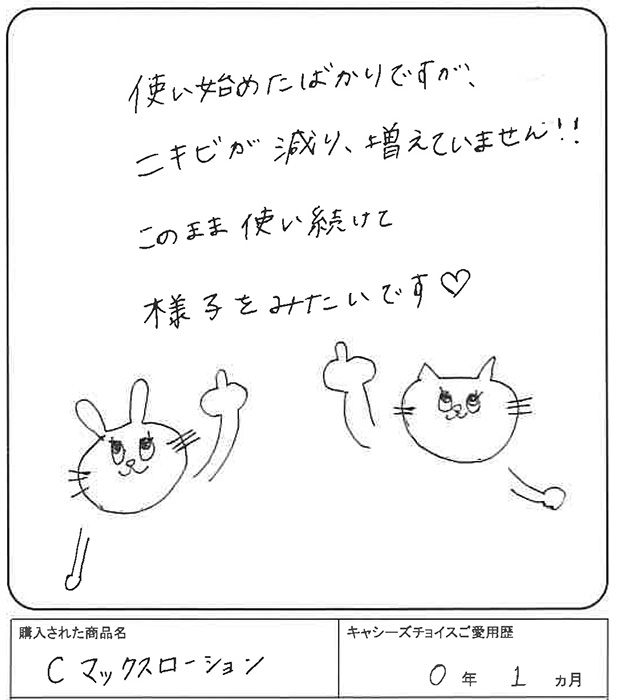 使い始めたばかりですが、
ニキビが減り、増えていません!!
このまま使い続けて
様子をみたいです♡
購入された商品名
Cマックスローション
キャシーズチョイスご愛用歴
0年1ヵ月